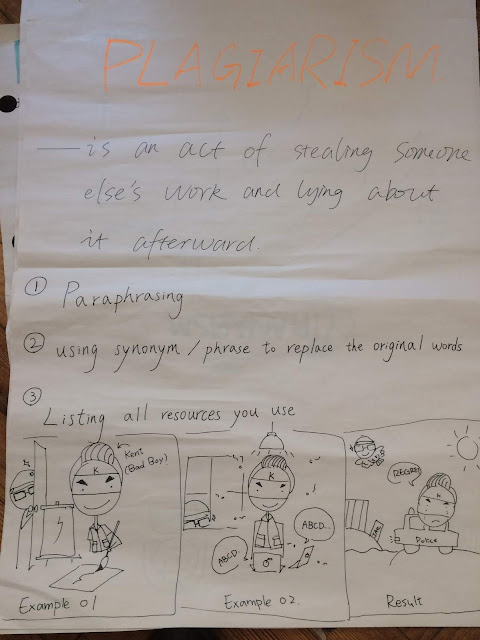 PLAGIARISM
— is an act of stealing someone
else's work and lying about
it afterward.
① Paraphrasing
② using synonym / phrase to replace the original words
③ Listing all resources you use
Kent
(Bad Boy)
K
K
ABCD..
ABCD...
REGRET
K
JAIL
Police
Example 01
Example 02.
Result